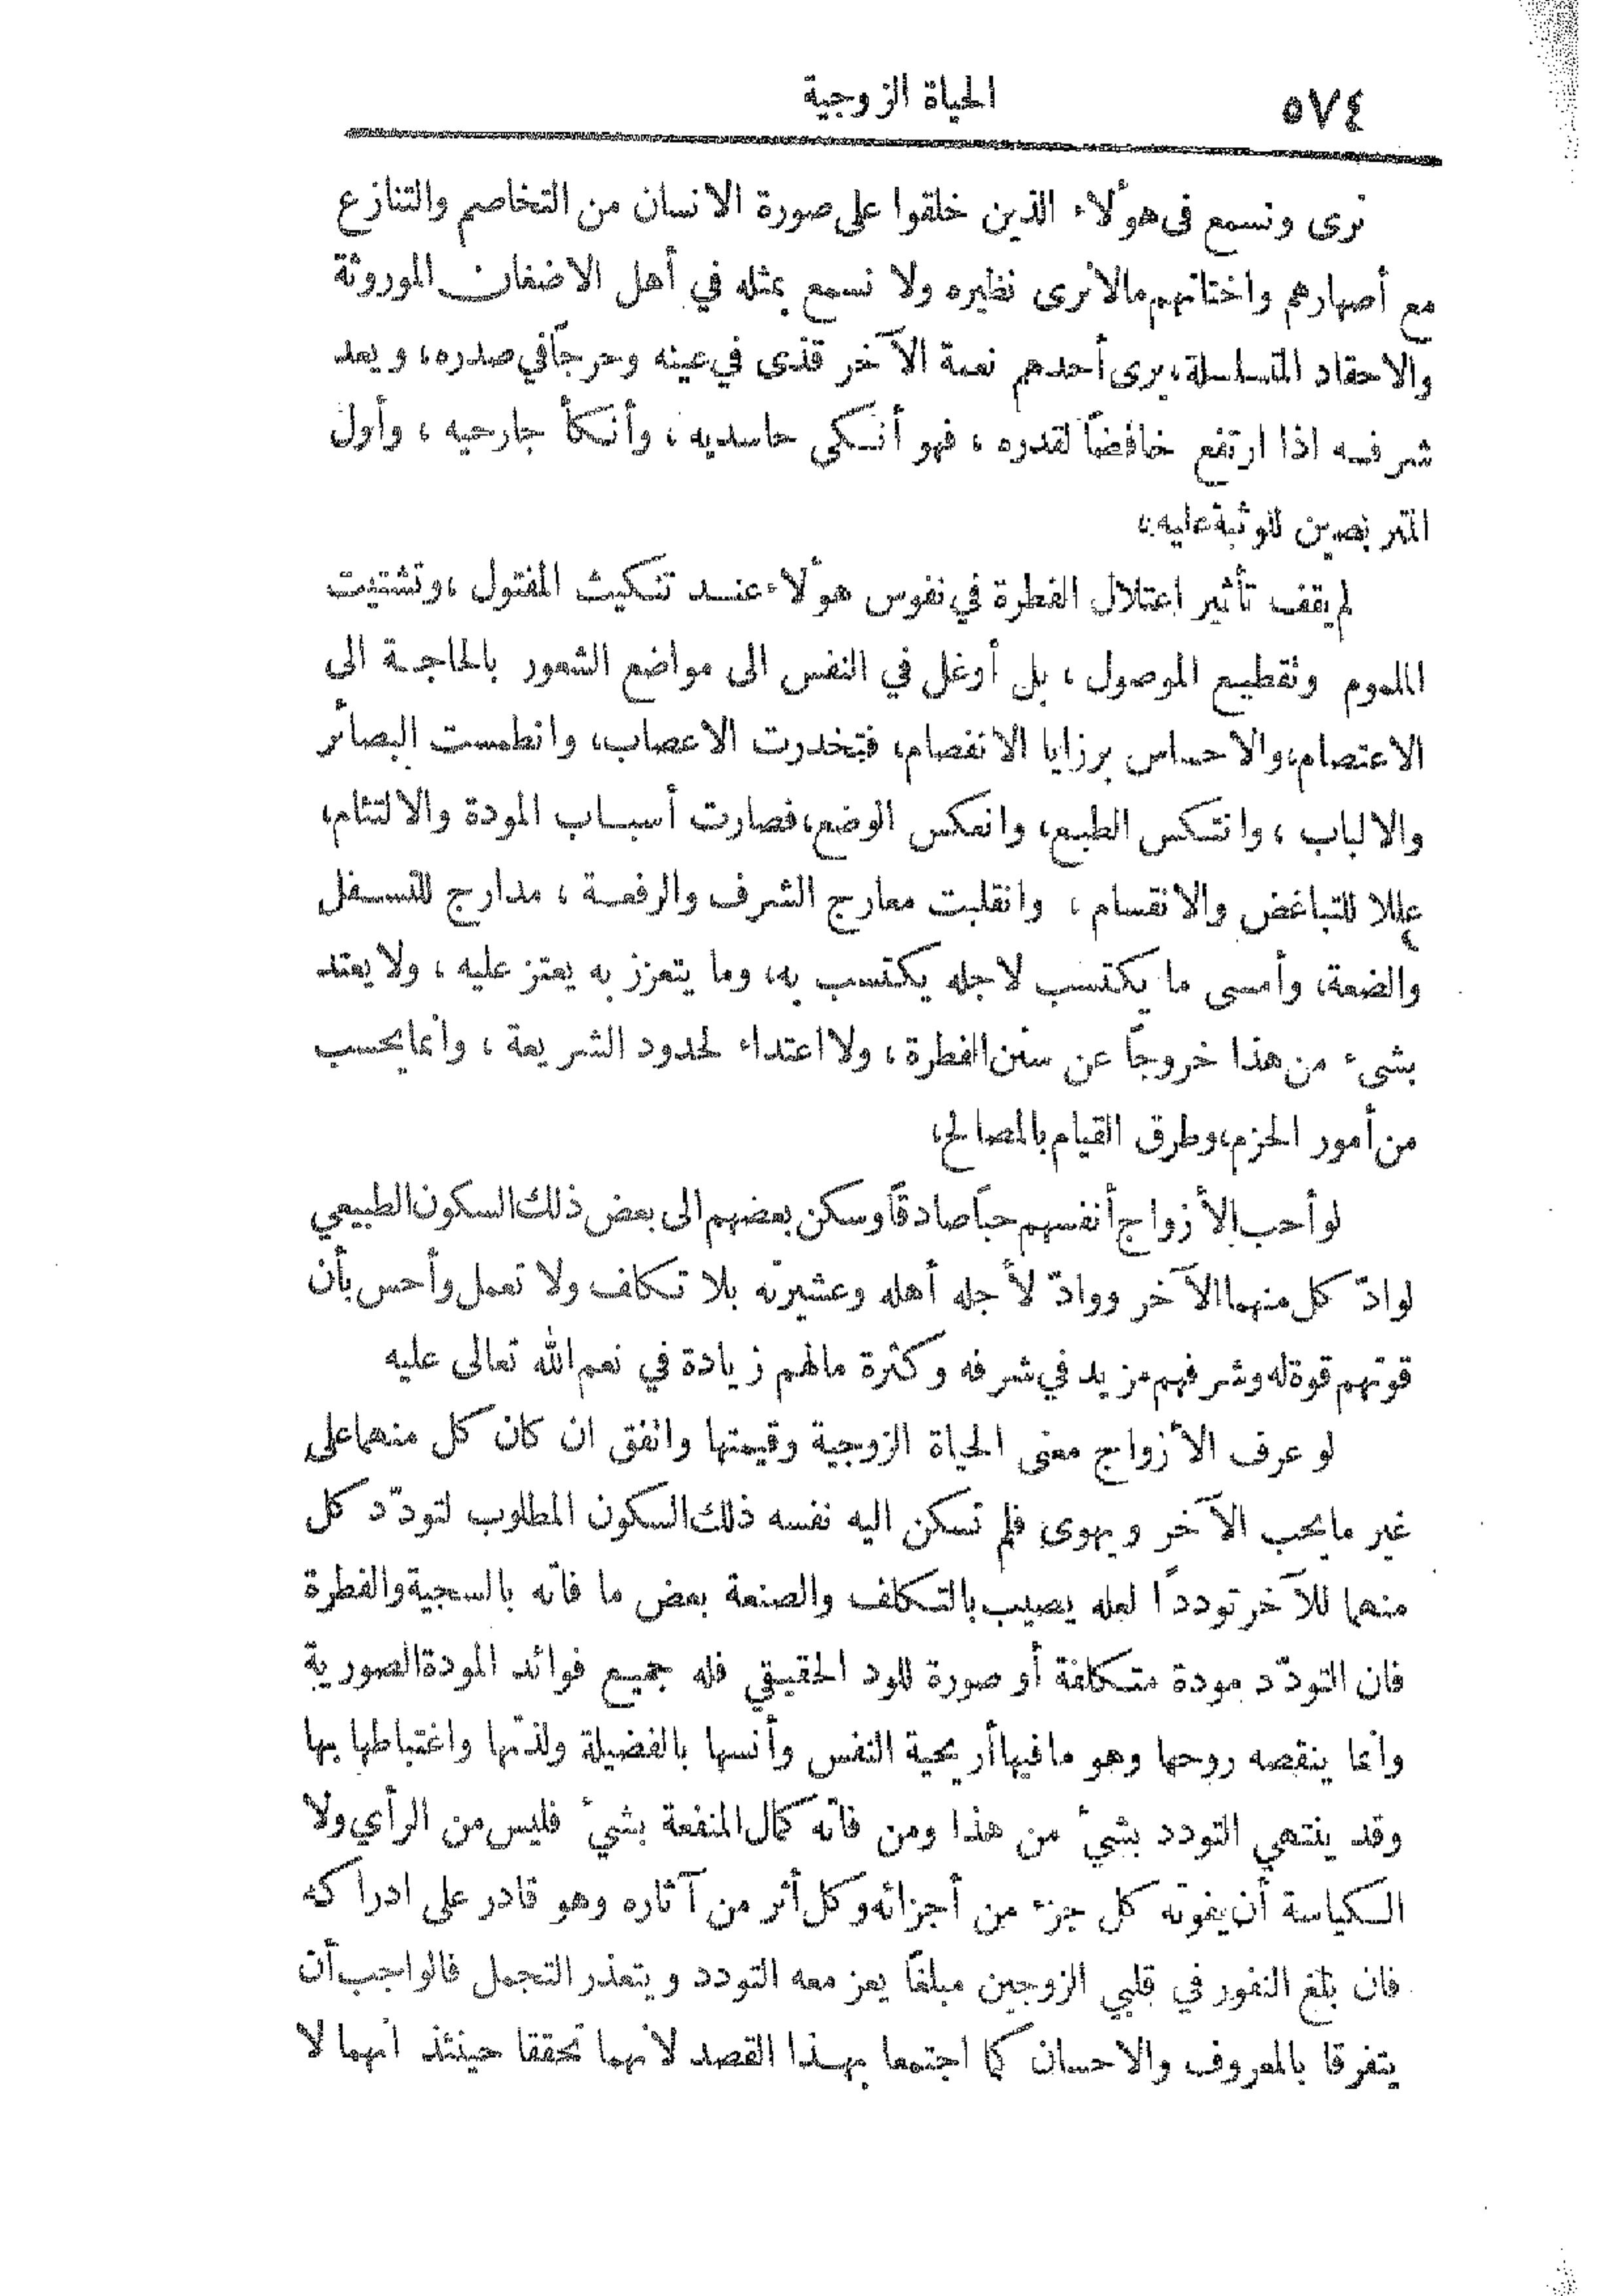 ٥٧٤
الحياة الزوجية
نرى ونسمع في هؤلاء الذين خلقوا على صورة الانسان من التخاصم والتنازع
مع أصهارهم واختانهم مالا نرى نظيره ولا نسمع بمثله في أهل الاضغان الموروثة
والاحقاد المتسلسلة، يرى أحدهم نعمة الآخر قذى في عينه وحرجاً في صدره، ويعد
شرفه اذا ارتفع خافضاً لقدره، فهو أنكى حاسديه، وأنكأ جارحيه، وأول
المتربصين للوثبة عليه،
لم يقف تأثير اعتلال الفطرة في نفوس هؤلاء عند تنكيث المفتول، وتشتيت
الملموم وتقطيع الموصول، بل أوغل في النفس الى مواضع الشعور بالحاجة الى
الاعتصام، والاحساس برزايا الانفصام، فتخدرت الاعصاب، وانطمست البصائر
والالباب، وانتكس الطبع، وانعكس الوضع، فصارت أسباب المودة والالتئام،
عللا للتباغض والانقسام، وانقلبت معارج الشرف والرفعة، مدارج للتسفل
والضعة، وأمسى ما يكتسب لاجله يكتسب به، وما يتعزز به يعتز عليه، ولا يعتد
بشيء من هذا خروجاً عن سنن الفطرة، ولا اعتداء لحدود الشريعة، وانما يحسب
من أمور الحزم، وطرق القيام بالمصالح،
لو أحب الأزواج أنفسهم حباً صادقاً وسكن بعضهم الى بعض ذلك السكون الطبيعي
لوادّ كل منهما الآخر ووادّ لأجله أهله وعشيرته بلا تكلف ولا تعمل وأحس بأن
قوتهم قوة له وشرفهم مزيد في شرفه وكثرة مالهم زيادة في نعم الله تعالى عليه
لو عرف الأزواج معنى الحياة الزوجية وقيمتها واتفق ان كان كل منهما على
غير ما يحب الآخر ويهوى فلم تسكن اليه نفسه ذلك السكون المطلوب لتودّد كل
منهما للآخر تودداً لعله يصيب بالتكلف والصنعة بعض ما فاته بالسجية والفطرة
فان التودّد مودة متكلفة أو صورة للود الحقيقي فله جميع فوائد المودة الصورية
وانما ينقصه روحها وهو ما فيها أريحية النفس وأنسها بالفضيلة ولذتها واغتباطها بها
وقد ينتهي التودد بشيء من هذا ومن فاته كمال المنفعة بشيء فليس من الرأي ولا
الكياسة أن يفوته كل جزء من أجزائه وكل أثر من آثاره وهو قادر على ادراكه
فان بلغ النفور في قلبي الزوجين مبلغاً يعز معه التودد ويتعذر التجمل فالواجب أن
يتفرقا بالمعروف والاحسان كما اجتمعا بهذا القصد لأنهما تحققا حينئذ انهما لا